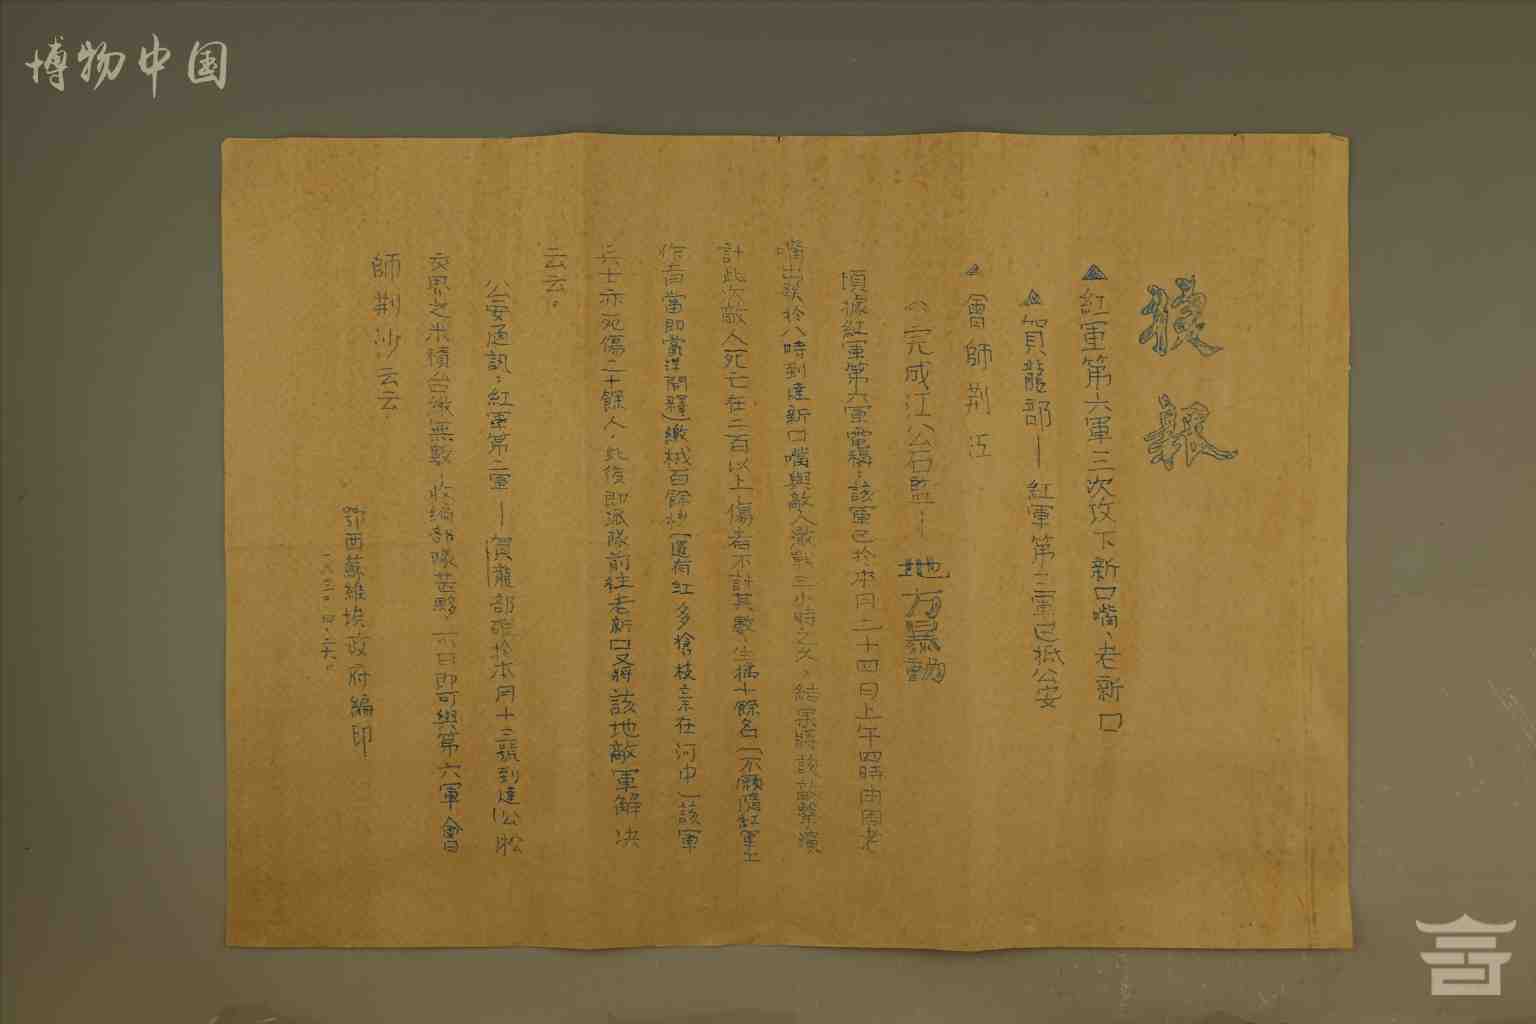 博物中国
捷報
▲紅軍第六軍三次攻下新口嘴、老新口
▲賀龍部—紅軍第二軍已抵公安
▲會師荆江
八二完成江公石監—地方暴動
頃據紅軍第六軍電稱：該軍已於本月二十四日上午四時由周老
嘴出發於八時到達新口嘴與敵人激戰三小時之久，結果將該敵擊潰
計此次敵人死亡在二百以上傷者不計其數、生擒十餘名（不願隨紅軍工
作者當即當洋開釋）繳械百餘枝（還有 多槍枝棄在河中）該軍
兵士亦死傷二十餘人，此後即派隊前往老新口又將該地敵軍解决
云云。
公安通訊：紅軍第二軍—賀龍部確於本月十三號到達公松
交界之米積台繳無數，收編部隊甚夥，六日即可與第六軍會
師荆沙云云
鄂西蘇維埃政府編印
一九三〇·四·二六。